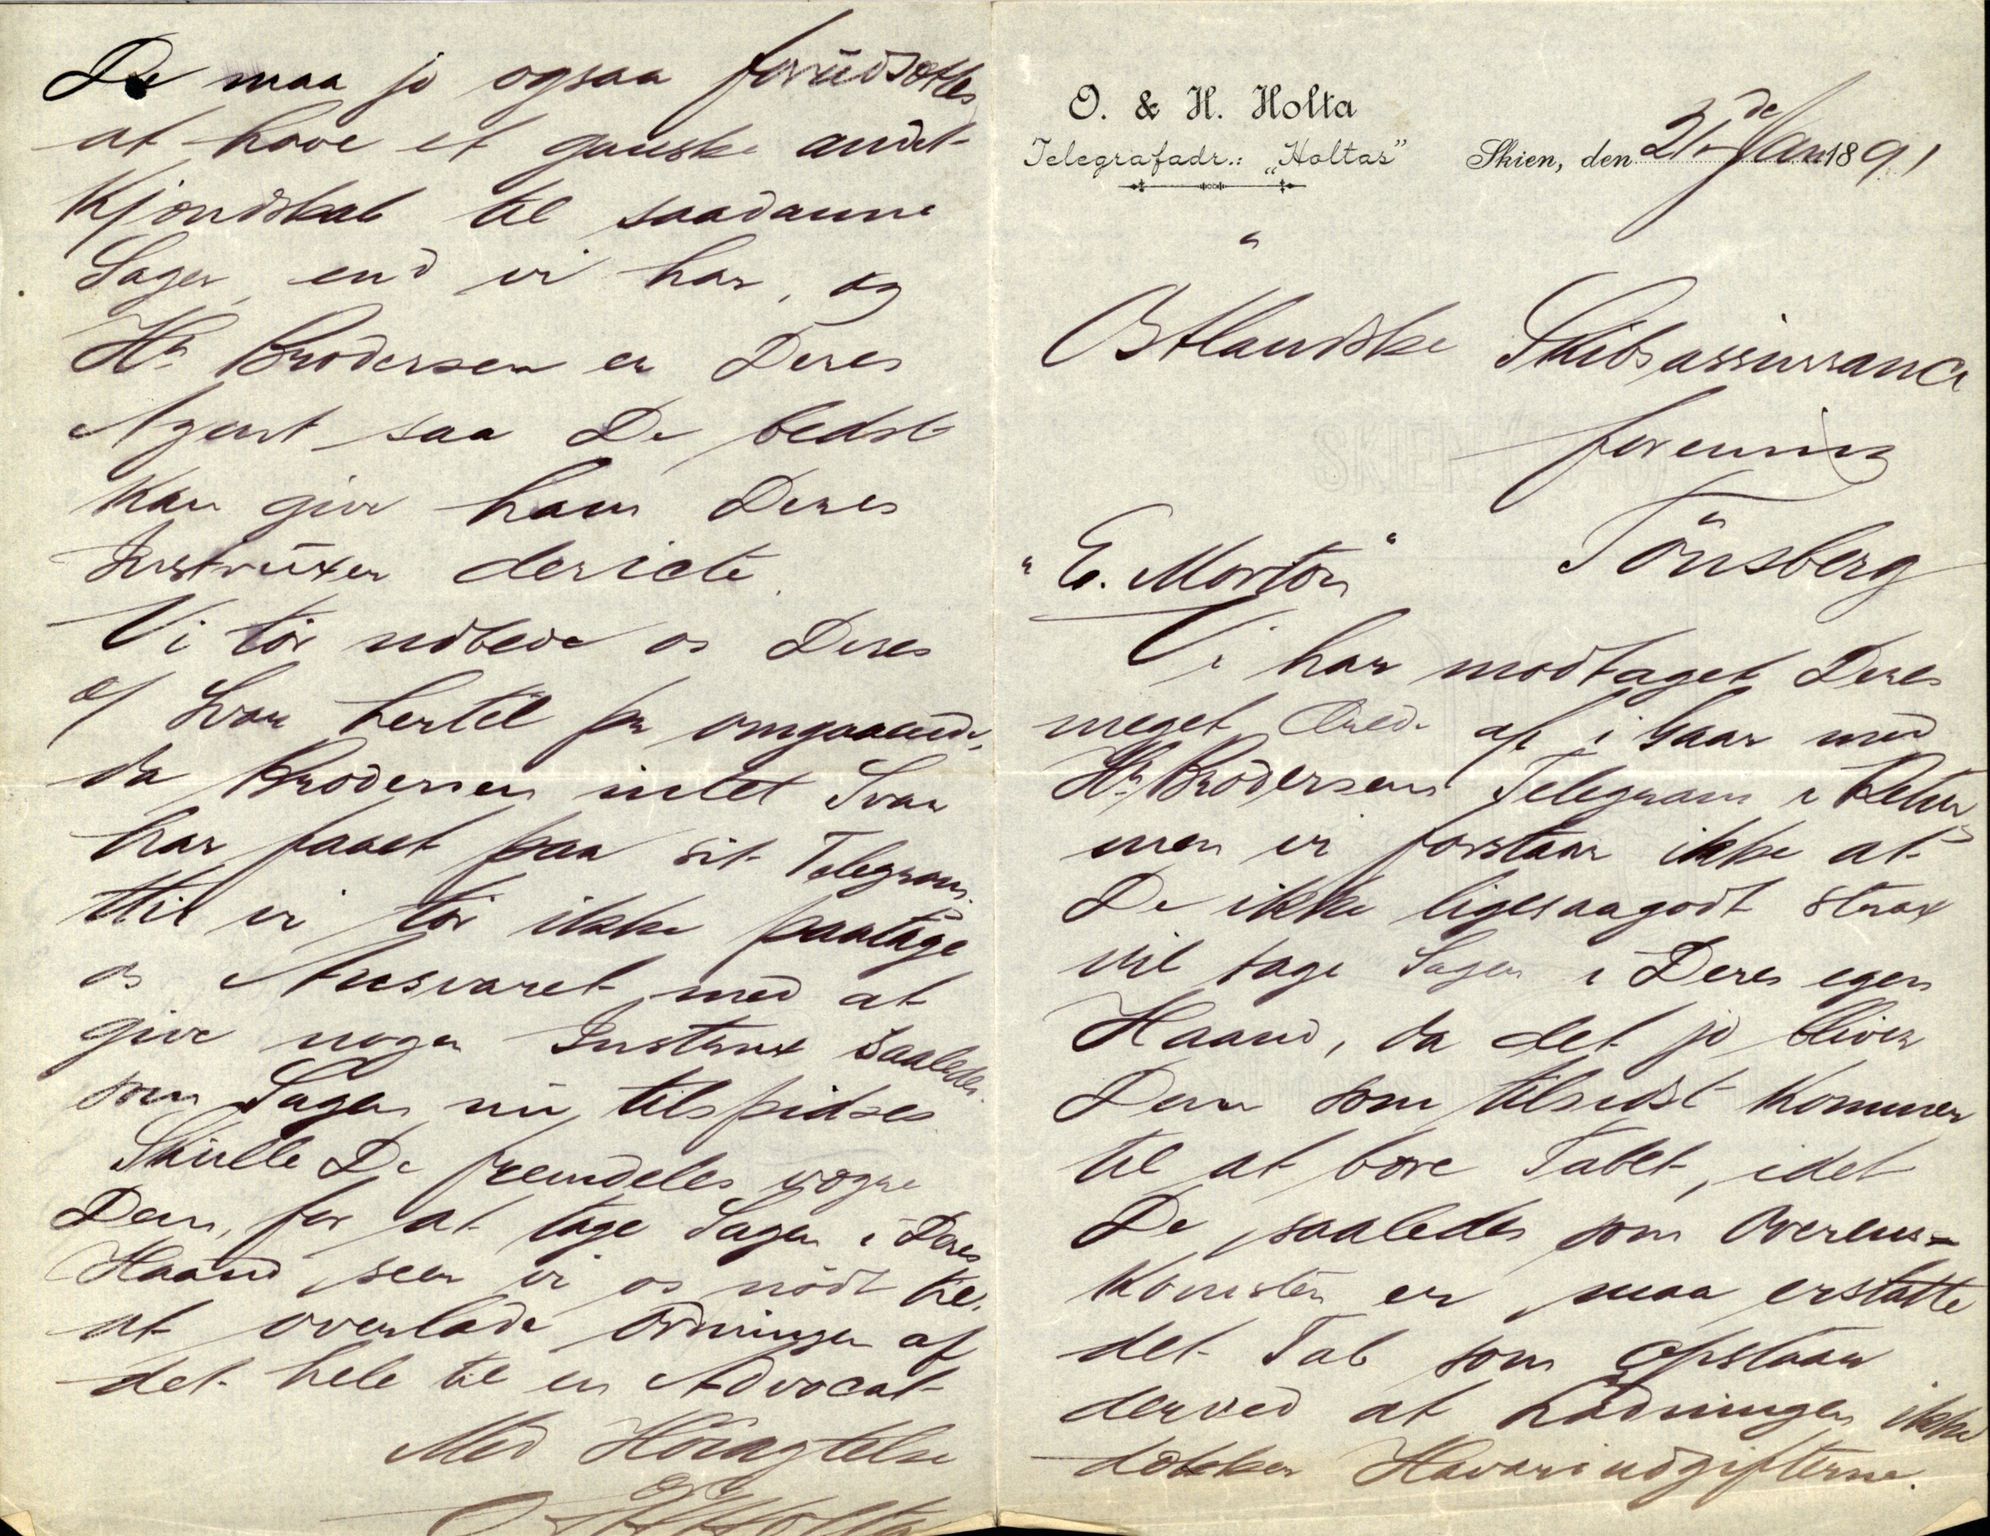 O. & H. Holta
Telegrafadr.: „Holtas”
Skien, den 21de Jan 1891
Østlandske Skibsassurrance
forening
Tönsberg
"E. Morton"
Vi har modtaget Deres
meget ærede af i Gaar med
Hr. Brodersens Telegram i Retur,
men vi forstaar ikke at
De ikke ligesaagodt strax
vil tage Sagen i Deres egen
Haand, da det jo bliver
Dem som tilsidst kommer
til at bære Tabet, idet
De saaledes som Overens-
komsten er, maa erstatte
det Tab som opstaar
derved at Ladningen ikke
dækker Havariudgifterne.
De maa jo ogsaa forudsættes
at have et ganske andet
Kjendskab til saadanne
Sager, end vi har, og
Hr. Brodersen er Deres
Agent saa De bedst
kan give ham Deres
Instruxer dericte.
Vi tör udbede os Deres
Svar hertil pr omgaaende,
da Brodersen intet Svar
har faaet paa sit Telegram,
thi vi tör ikke paatage
os Ansvaret med at
give nogen Instrux saaledes
som Sagen nu tilspidses.
Skulle De fremdeles vægre
Dem, for at tage Sagen i Deres
Haand seer vi os nödt til,
at overlade Ordningen af
det hele til en Advocat
Med Höiagtelse
O & H Holta